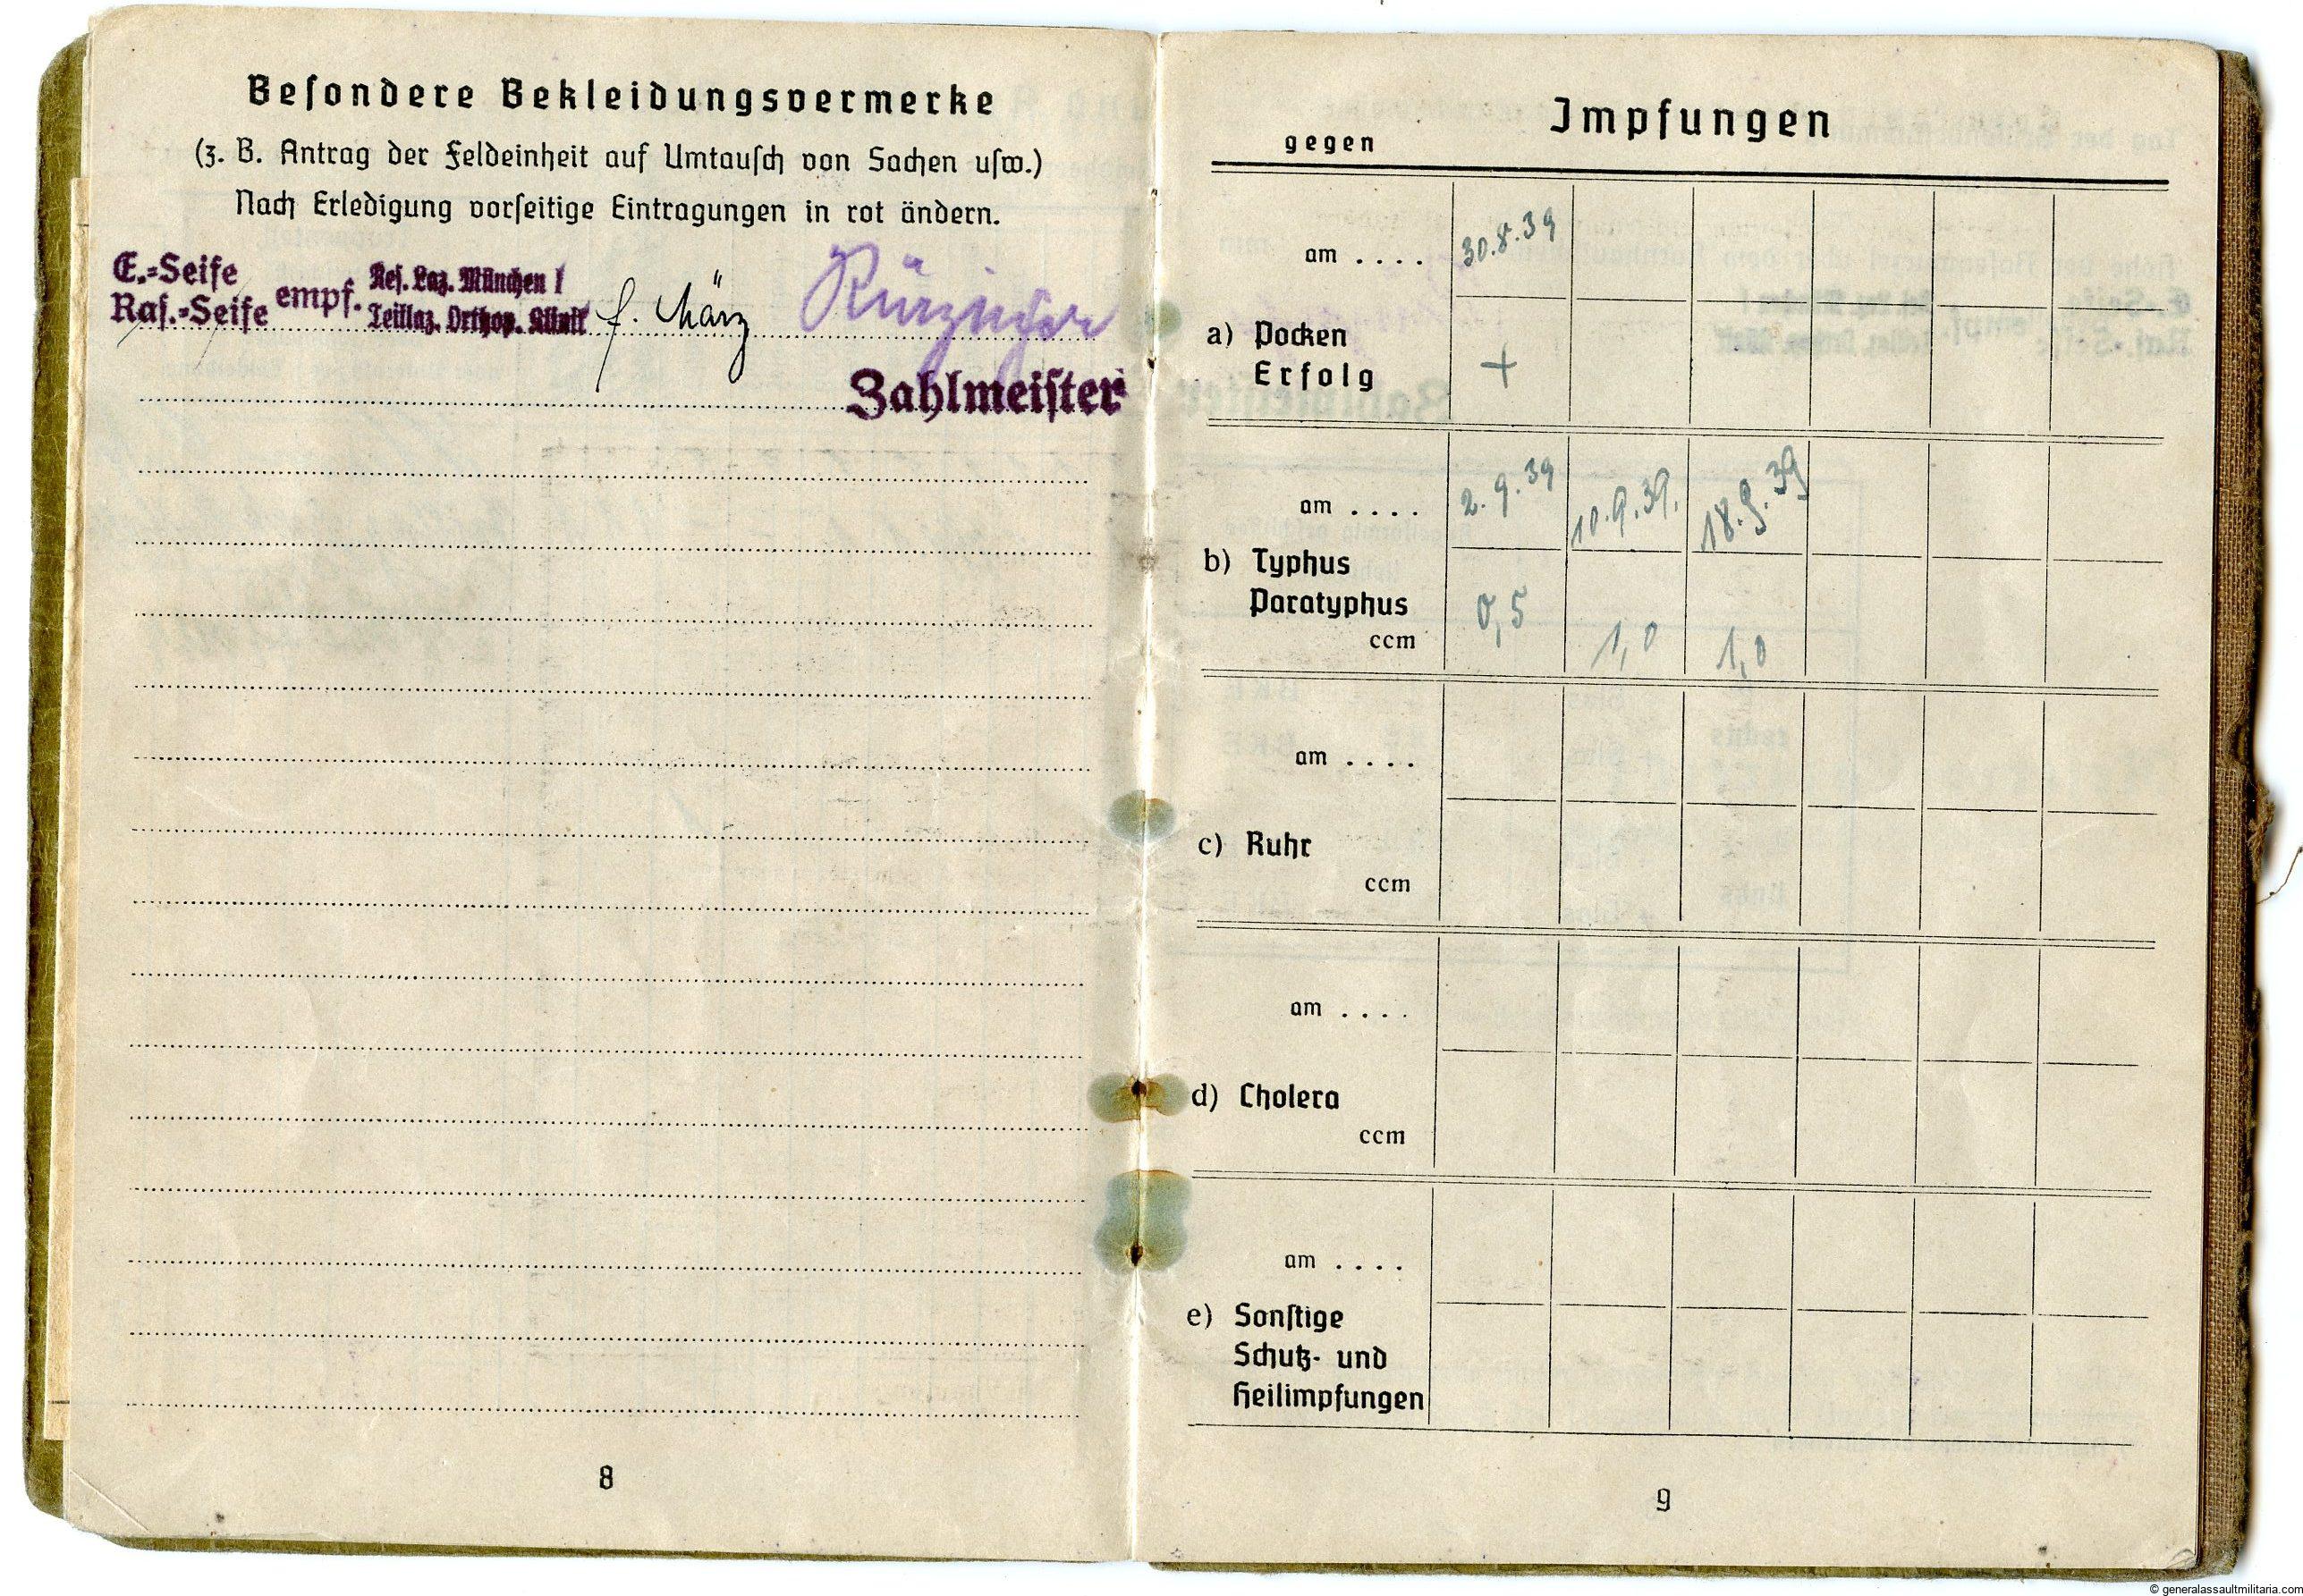 Beſondere Bekleidungsvermerke
(z. B. Antrag der Feldeinheit auf Umtauſch von Sachen uſw.)
Nach Erledigung vorſeitige Eintragungen in rot ändern.
E.=Seife
Raſ.=Seife empf. Reſ. Laz. München I
Teillaz. Orthop. Klinik f. März
Zahlmeiſter
8
Impfungen
gegen
am .... 30.8.39
a) Pocken
Erfolg +
am .... 2.9.39 10.9.39. 18.9.39
b) Typhus
Paratyphus
ccm 0,5 1,0 1,0
am ....
c) Ruhr
ccm
am ....
d) Cholera
ccm
am ....
e) Sonſtige
Schutz- und
Heilimpfungen
9
© generalassaultmilitaria.com